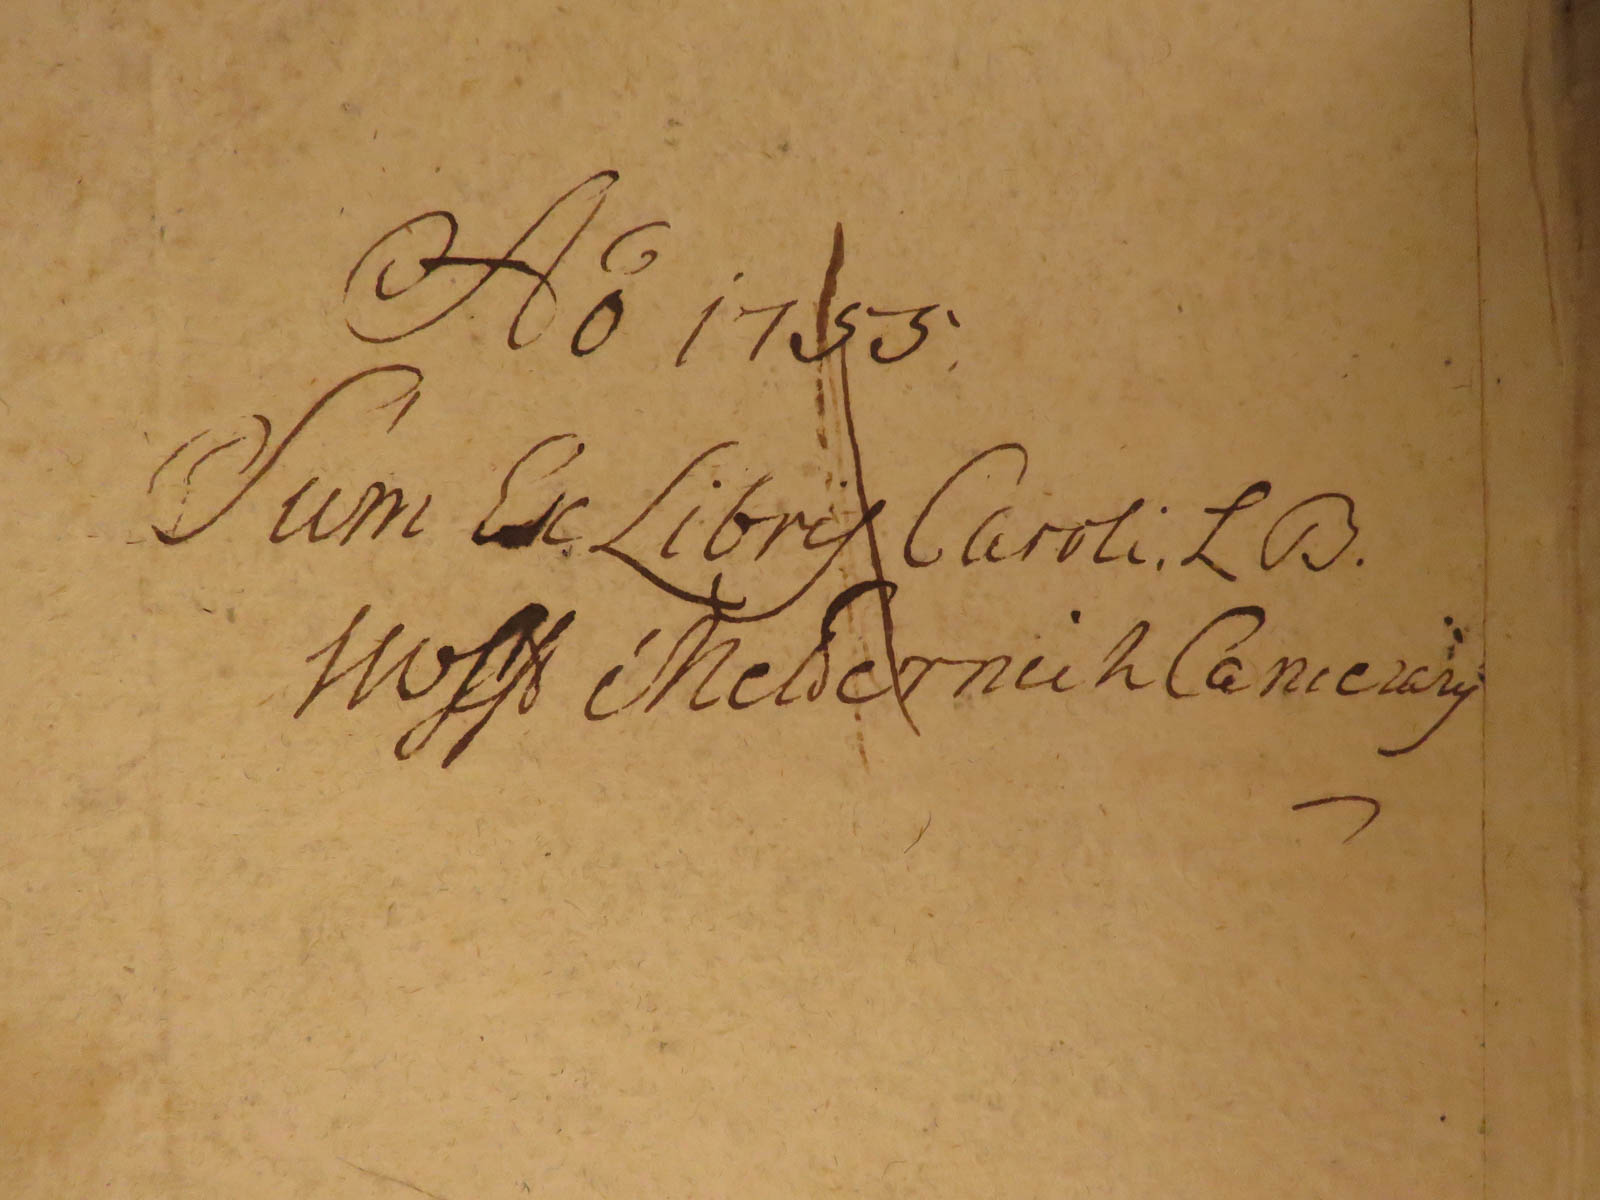 Aõ 1755.
Sum Ex Libris Caroli. L B.
Wolff Metternich Camerarÿ